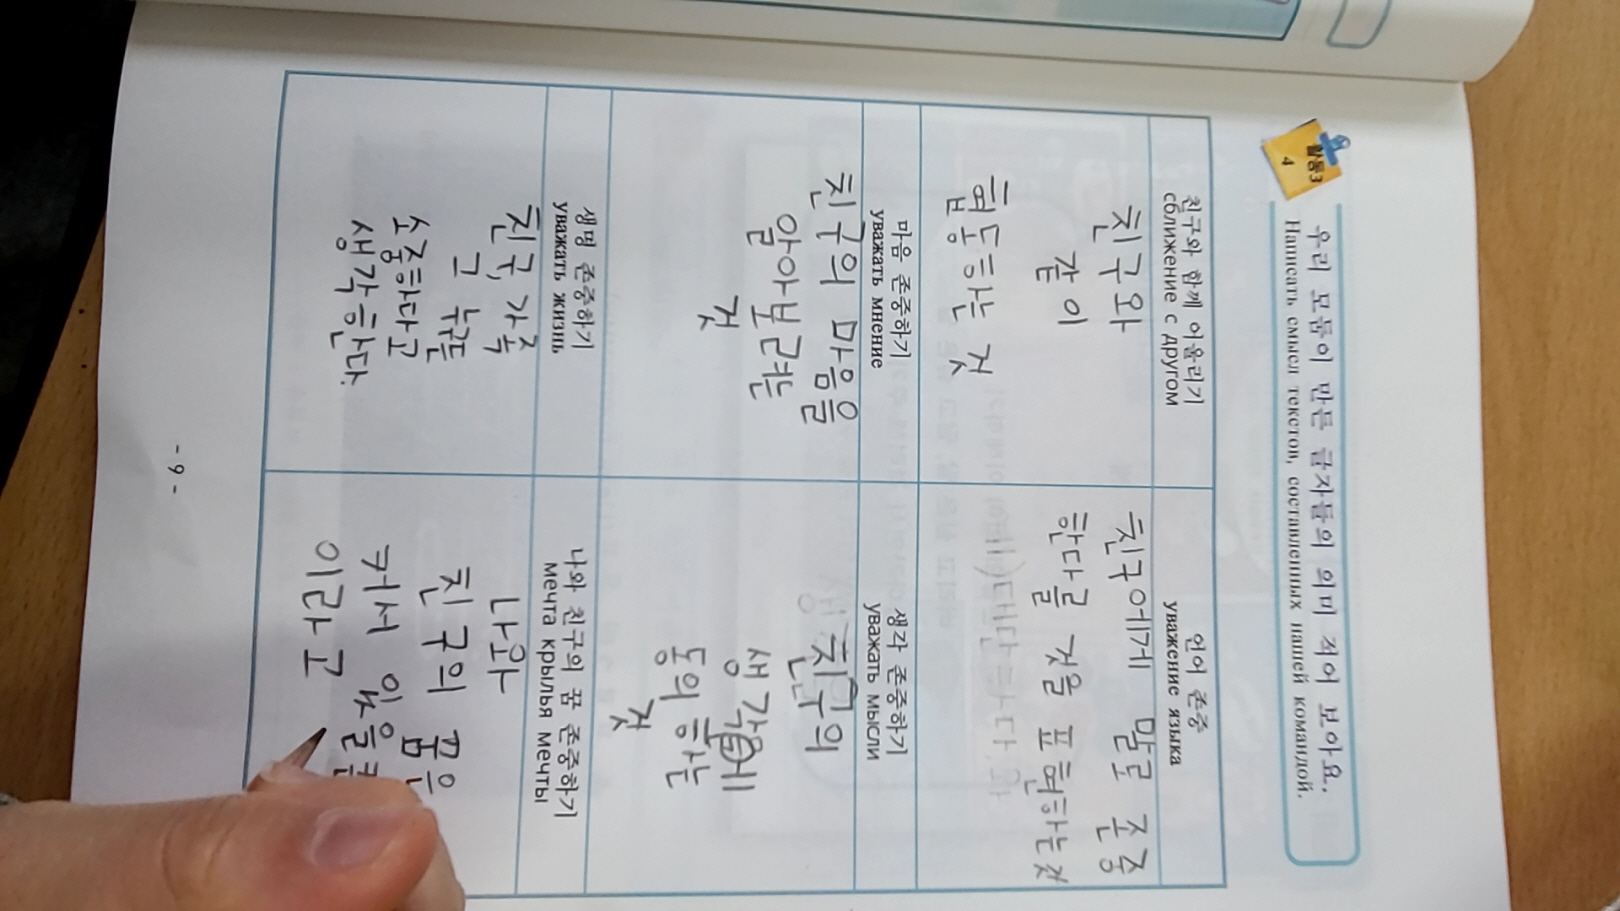 활동3
4
우리 모둠이 만든 글자들의 의미 적어 보아요.
Написать смысл текстов, составленных нашей командой.
친구와 함께 어울리기
сближение с другом
친구와
같이
협동하는 것
언어 존중
уважение языка
친구에게 말로 존중
한다를 표현하는것
마음 존중하기
уважать мнение
친구의 마음을
알아보려는
것
생각 존중하기
уважать мысли
친구의
생각에
동의 하는
것
생명 존중하기
уважать жизнь
친구, 가족
그
소중하다고
생각한다.
나와 친구의 꿈 존중하기
мечта крылья мечты
나와
친구의 꿈은
커서 있을
이라고
- 9 -